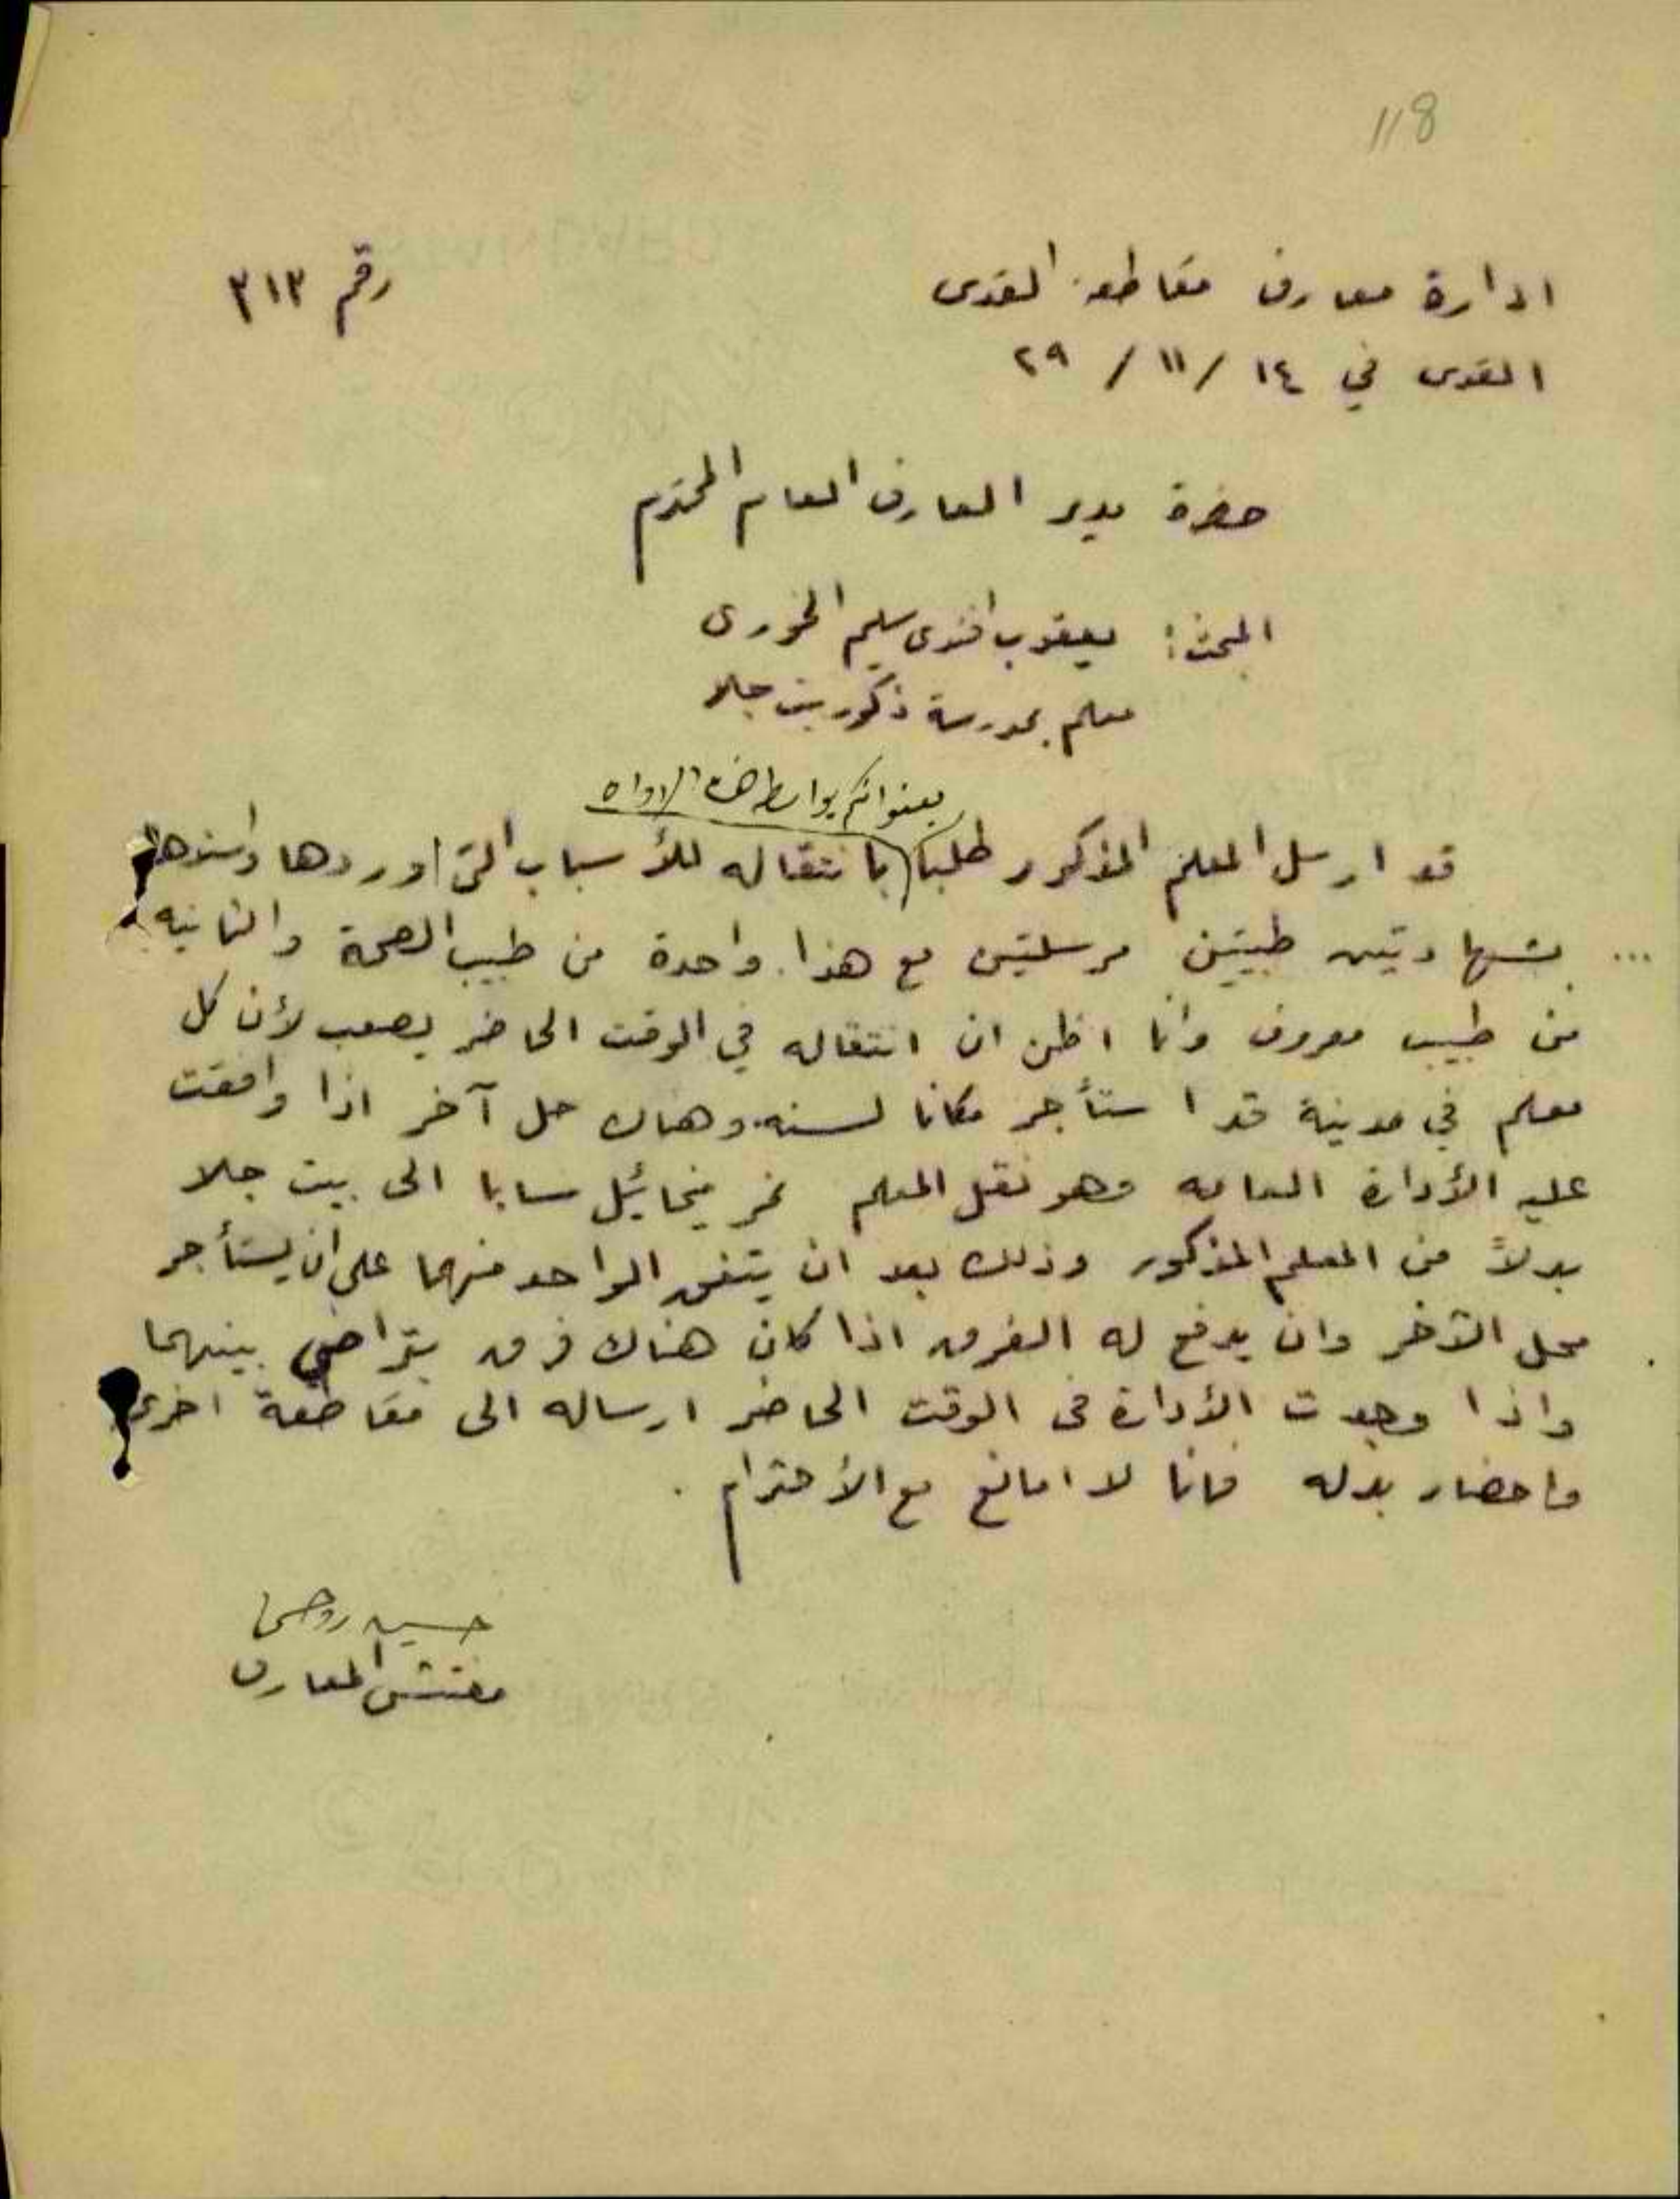 118
ادارة معارف مقاطعة القدس
رقم ٣١٣
القدس في ١٤ / ١١ / ٢٩
حضرة مدير المعارف العام المحترم
المبحث : يعقوب افندي سليم الخوري
معلم بمدرسة ذكور بيت جلا
بعنوانكم بواسطة هذه الاداره
قد ارسل المعلم المذكور طلبا بانتقاله للأسباب التي اوردها واسندها
... بشهادتين طبيتين مرسلتين مع هذا. واحدة من طبيب الصحة والثانيه
من طبيب معروف وانا اظن ان انتقاله في الوقت الحاضر يصعب لأن كل
معلم في مدينة قد استأجر مكانا لسنه. وهناك حل آخر اذا وافقت
عليه الأدارة العامه وهو نقل المعلم نمر ميخائيل سابا الى بيت جلا
بدلاً من المعلم المذكور وذلك بعد ان يتفق الواحد منهما على ان يستأجر
محل الآخر وان يدفع له الفرق اذا كان هناك فرق بتراضي بينهما
واذا وجدت الأدارة في الوقت الحاضر ارساله الى مقاطعة اخرى
واحضار بدله فانا لا امانع مع الأحترام .
حسين روحي
مفتش المعارف